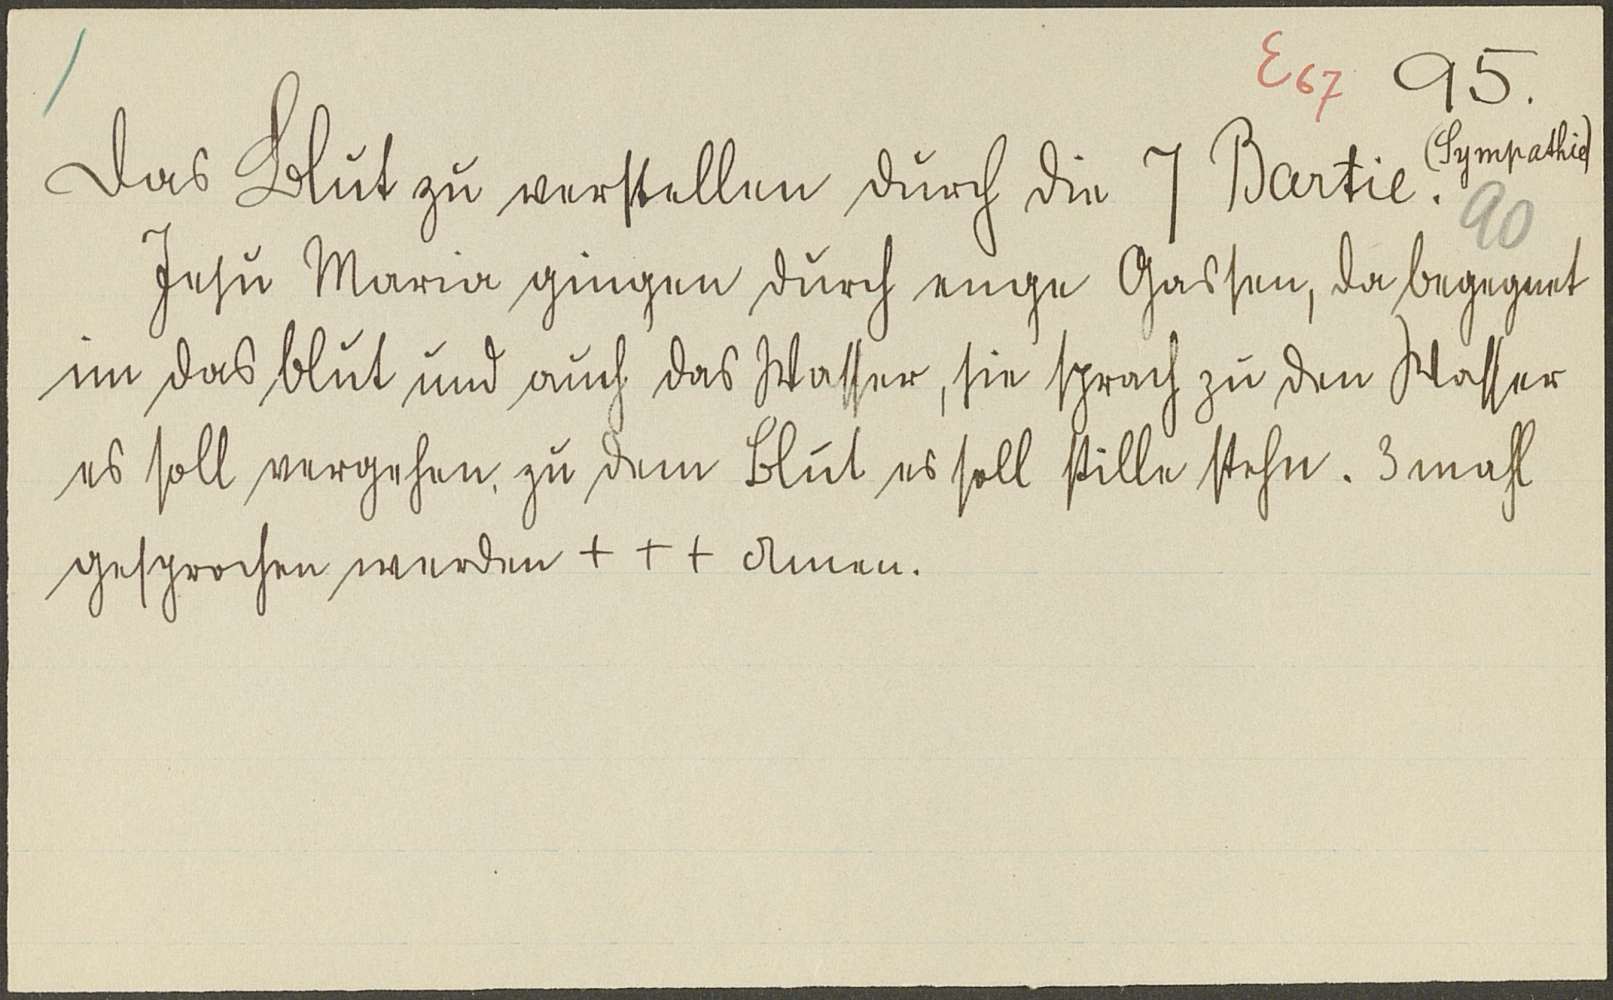 E67 95.
Das Blut zu verstellen durch die 7 Bartie. (Sympathie)
90
Jesu Maria gingen durch enge Gassen, da begegnet
im das blut und auch das Wasser, sie sprach zu den Wasser
es soll vergehen, zu dem Blut es soll stille stehn. 3 mahl
gesprochen werden + + + Amen.